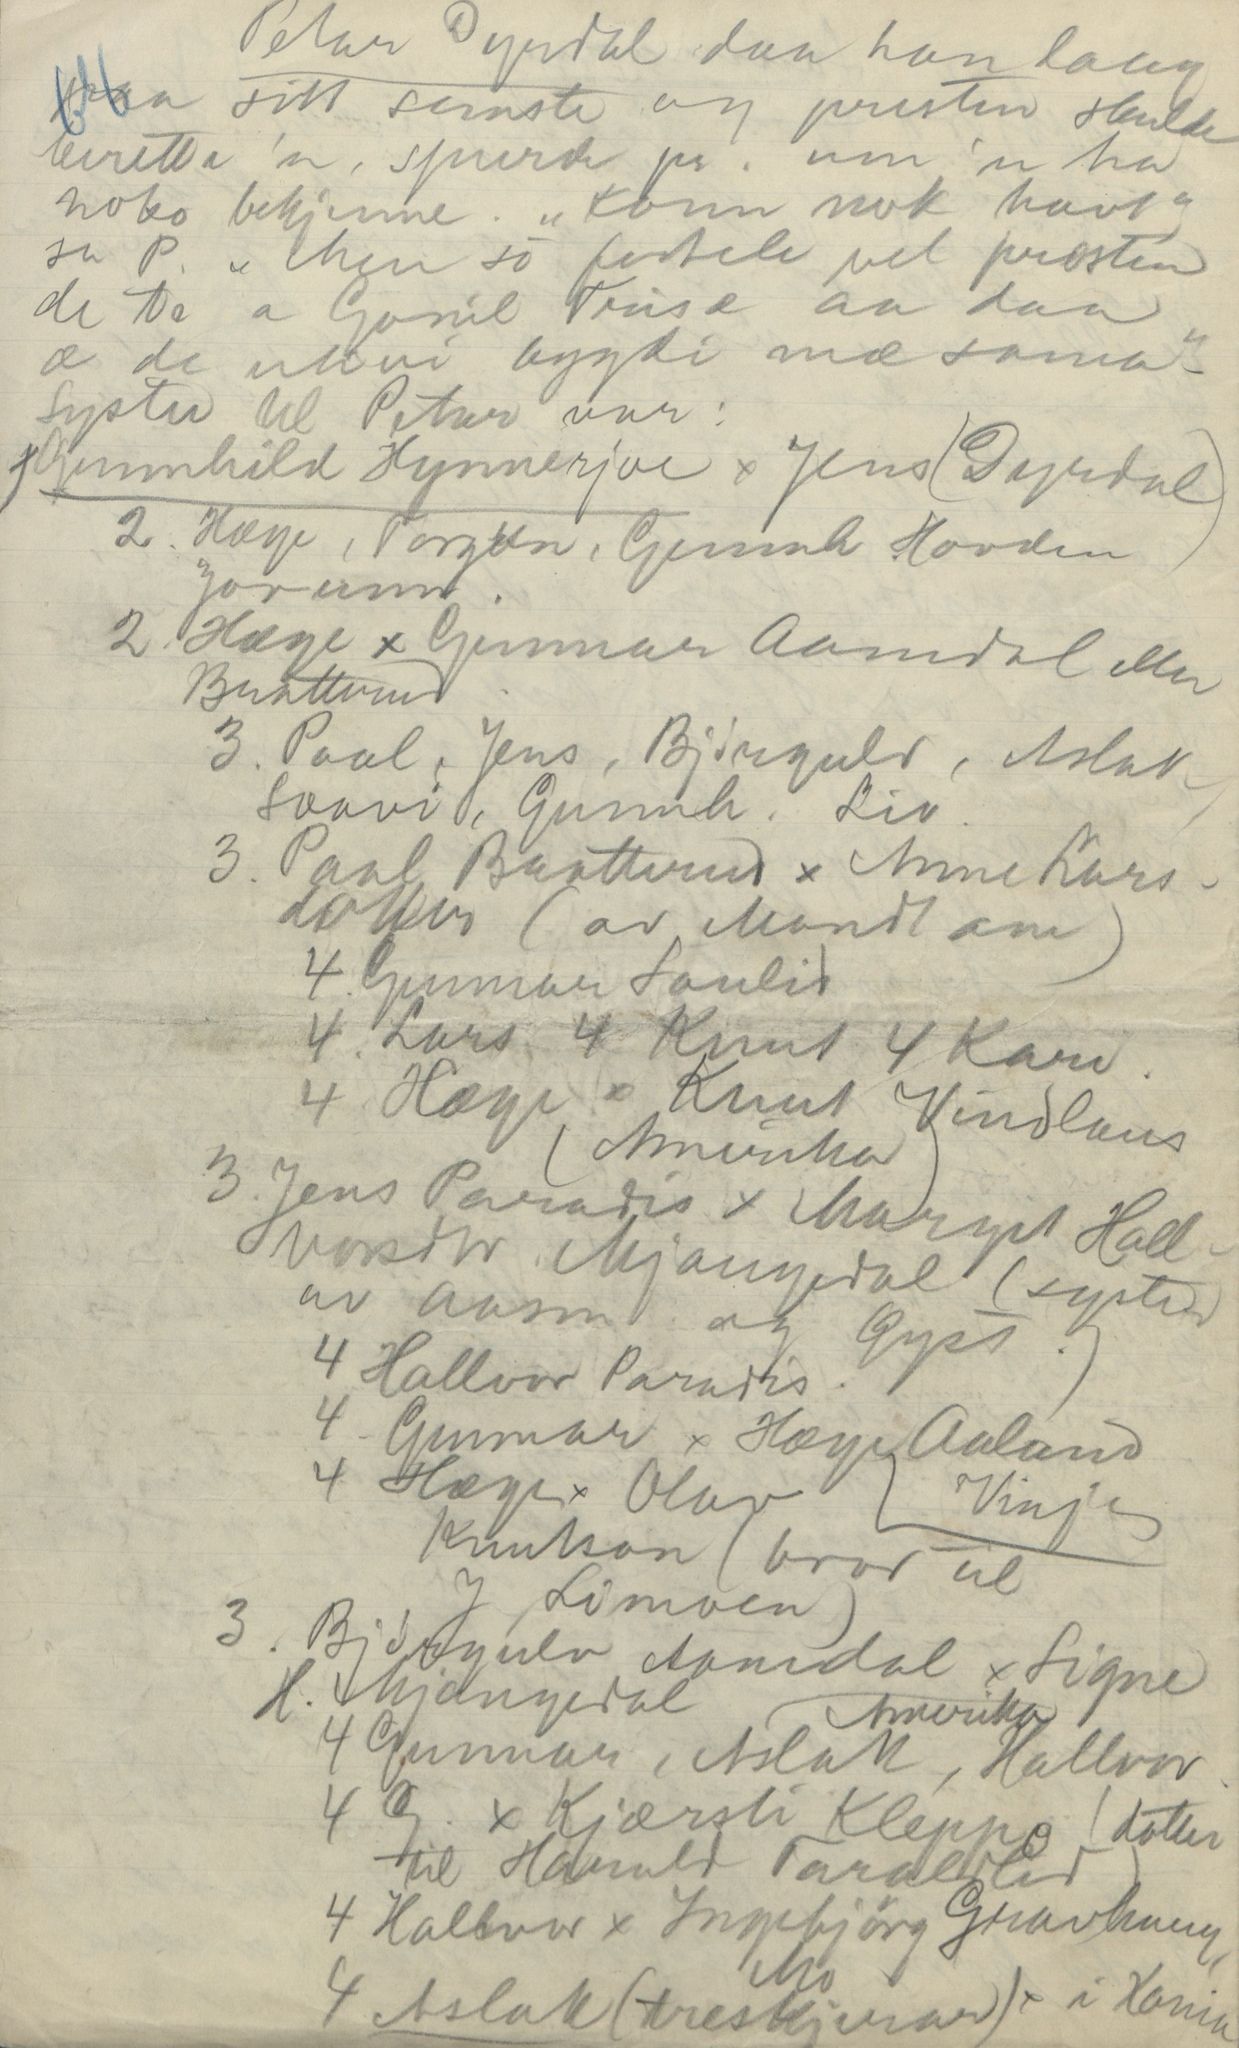 64
Petar Dyrdal daa han laag
paa sitt samste og presten skulde
beretta 'n, spurde pr. um 'n ha
noko bekjenne. "Konn nok havt"
sa P. "Men so fortele vel presten
de te a Gonil Triisæ aa daa
æ de utovi bygdi mæ sama"
Syster til Petar var:
Gunnhild Hynnerjoe x Jens (Dyrdal)
2. Hæge, Torgun, Gunnh Hovden
Jorunn.
2. Hæge x Gunnar Aamdal eller
Braatterud.
3. Paal, Jens, Björgulv, Aslak,
Saavi, Gunnh. Liv.
3. Paal Braatterud x Anne Lars-
dotter (av Mandt ane)
4. Gunnar Saulid
4. Lars 4 Knut 4 Kari.
4. Hæge x Knut Vindlaus
(Amerika)
3. Jens Paradis x Margit Hall-
vorsdtr. Mjaugedal (syster
av Aasm. og Gyst.)
4 Hallvor Paradis.
4. Gunnar x Hæge Aaland
4 Hæge x Olav Vinje
Knutson (bror til
J Limoen)
3. Björgulv Aamdal x Signe
H. Mjaugedal Amerika
4 Gunnar, Aslak, Hallvor.
4 G. x Kjærsti Kleppo (dotter
til Harald Taraldlid)
4 Hallvor x Ingebjörg Gravhaug,
Mo
4 Aslak (treskjerar) x i Kania